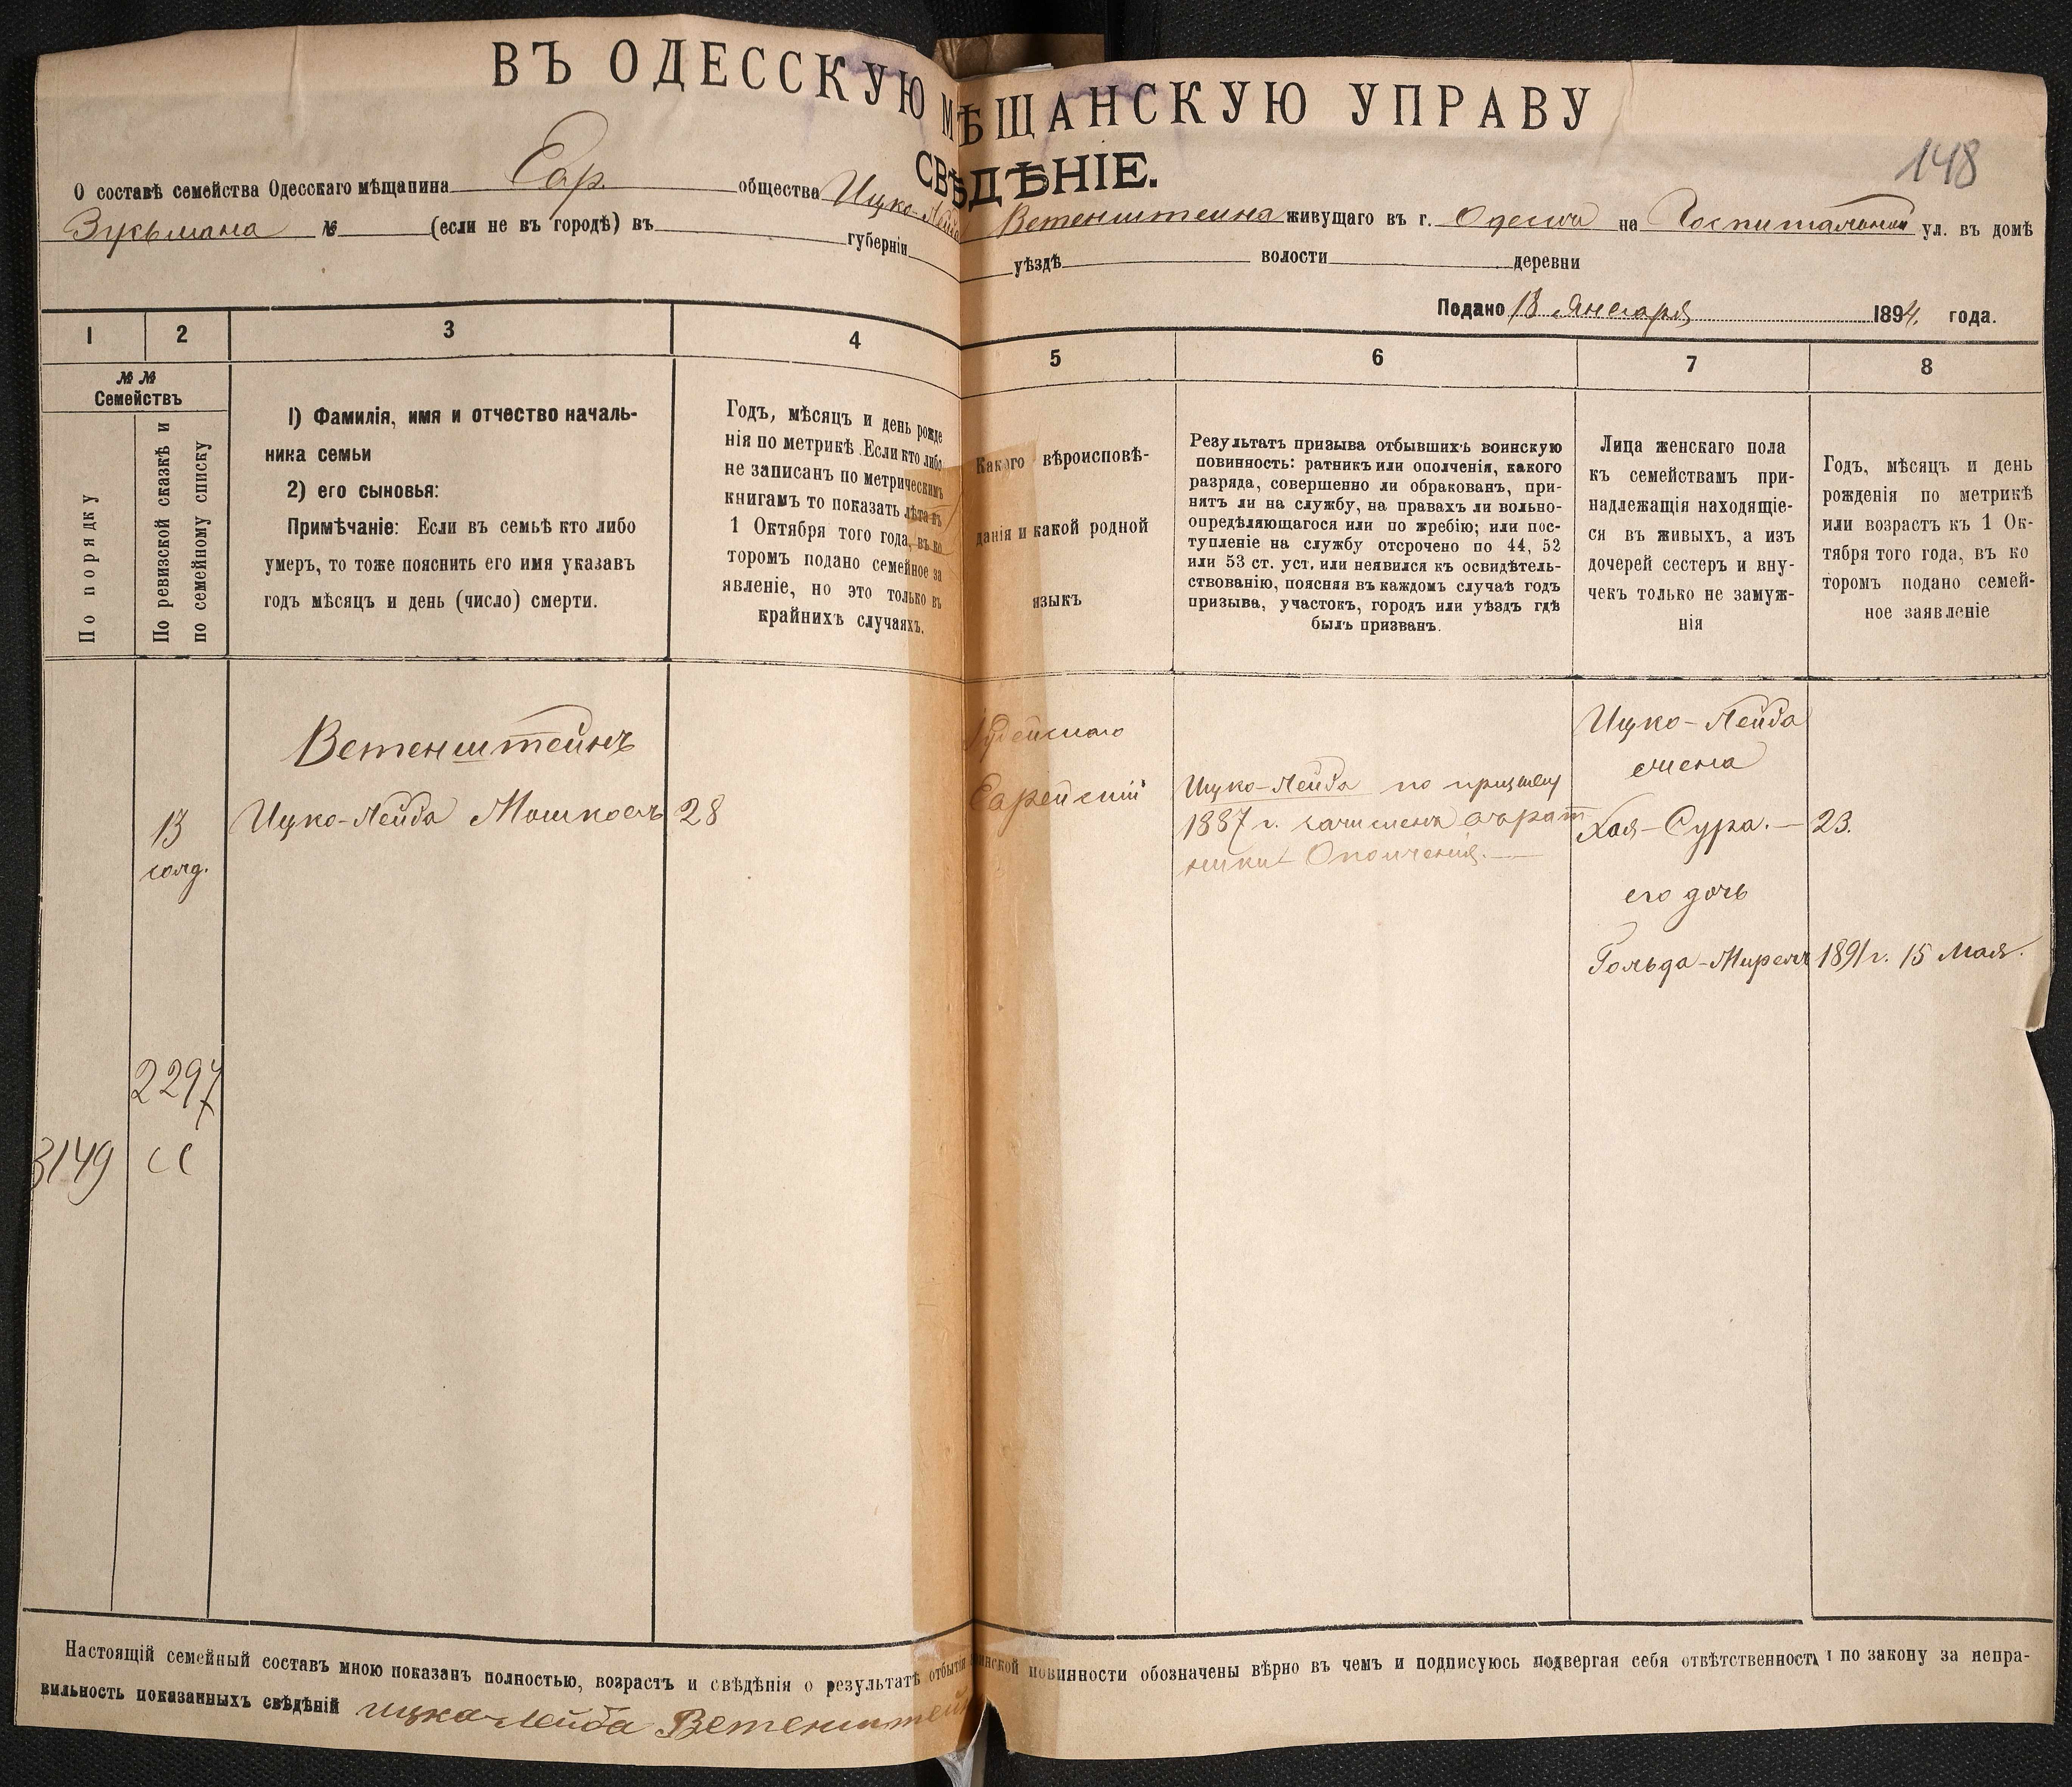 ВЪ ОДЕССКУЮ МѢЩАНСКУЮ УПРАВУ
СВѢДѢНІЕ.
148
О составѣ семейства Одесскаго мѣщанина Евр. общества Ицко-Лейба Ветенштейна живущаго въ г. Одесса на Госпитальной ул. въ домѣ
Зукьмана № (если не въ городѣ) въ губерніи уѣздѣ волости деревни
Подано 18 Января 1894 года.
1 2 3 4 5 6 7 8
№ №
Семействъ
По порядку
По ревизской сказкѣ и
по семейному списку
1) Фамилія, имя и отчество началь-
ника семьи
2) его сыновья:
Примѣчаніе: Если въ семьѣ кто либо
умеръ, то тоже пояснить его имя указавъ
годъ мѣсяцъ и день (число) смерти.
Годъ, мѣсяцъ и день рожде
нія по метрикѣ Если кто либо
не записанъ по метрическимъ
книгамъ то показать лѣта къ
1 Октября того года, въ ко
торомъ подано семейное за
явленіе, но это только въ
крайнихъ случаяхъ.
Какого вѣроисповѣ-
данія и какой родной
языкъ
Результатъ призыва отбывшихъ воинскую
повинность: ратникъ или ополченія, какого
разряда, совершенно ли обракованъ, при-
нятъ ли на службу, на правахъ ли вольно-
опредѣляющагося или по жребію; или пос-
тупленіе на службу отсрочено по 44, 52
или 53 ст. уст. или неявился къ освидѣтель-
ствованію, поясняя въ каждомъ случаѣ годъ
призыва, участокъ, городъ или уѣздъ гдѣ
былъ призванъ.
Лица женскаго пола
къ семействамъ при-
надлежащія находящіе-
ся въ живыхъ, а изъ
дочерей сестеръ и вну-
чекъ только не замуж-
нія
Годъ, мѣсяцъ и день
рожденія по метрикѣ
или возрастъ къ 1 Ок-
тября того года, въ ко
торомъ подано семей-
ное заявленіе
13
Ветенштейнъ
Ицко-Лейба Мошковъ
28
Іудейскаго
Еврейскій
Ицко-Лейба по призыву
1887 г. зачисленъ въ рат
ники Ополченія.
Ицко-Лейба
жена
Хая-Сура. — 23.
его дочь
Гольда-Мирель 1891 г. 15 Мая.
2297
3149
Настоящій семейный составъ мною показанъ полностью, возрастъ и свѣдѣнія о результатѣ отбытія воинской повинности обозначены вѣрно въ чемъ и подписуюсь подвергая себя отвѣтственности по закону за непра-
вильность показанныхъ свѣдѣній ицка-лейба Ветенштейн